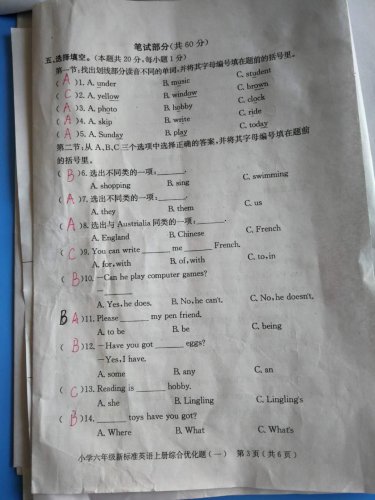 笔试部分(共60分)
五、选择填空。(本题共20分,每小题1分)
第一节:找出划线部分读音不同的单词,并将其字母编号填在题前的括号里。
( A )1. A. under B. music C. student
( C )2. A. yellow B. window C. brown
( A )3. A. photo B. hobby C. clock
( A )4. A. skip B. write C. ride
( A )5. A. Sunday B. play C. today
第二节:从A、B、C三个选项中选择正确的答案,并将其字母编号填在题前
的括号里。
( B )6. 选出不同类的一项:______.
A. shopping B. sing C. swimming
( A )7. 选出不同类的一项:______.
A. they B. them C. us
( A )8. 选出与Australia同类的一项:______.
A. England B. Chinese C. French
( C )9. You can write ______ me ______ French.
A. for, with B. of, with C. to, in
( B )10. —Can he play computer games?
— ______
A. Yes, he does. B. No, he can't. C. No, he doesn't.
B A )11. Please ______ my pen friend.
A. to be B. be C. being
( B )12. —Have you got ______ eggs?
—Yes, I have.
A. some B. any C. an
( C )13. Reading is ______ hobby.
A. she B. Lingling C. Lingling's
( B )14. ______ toys have you got?
A. Where B. What C. What's
小学六年级新标准英语上册综合优化题(一) 第3页(共6页)